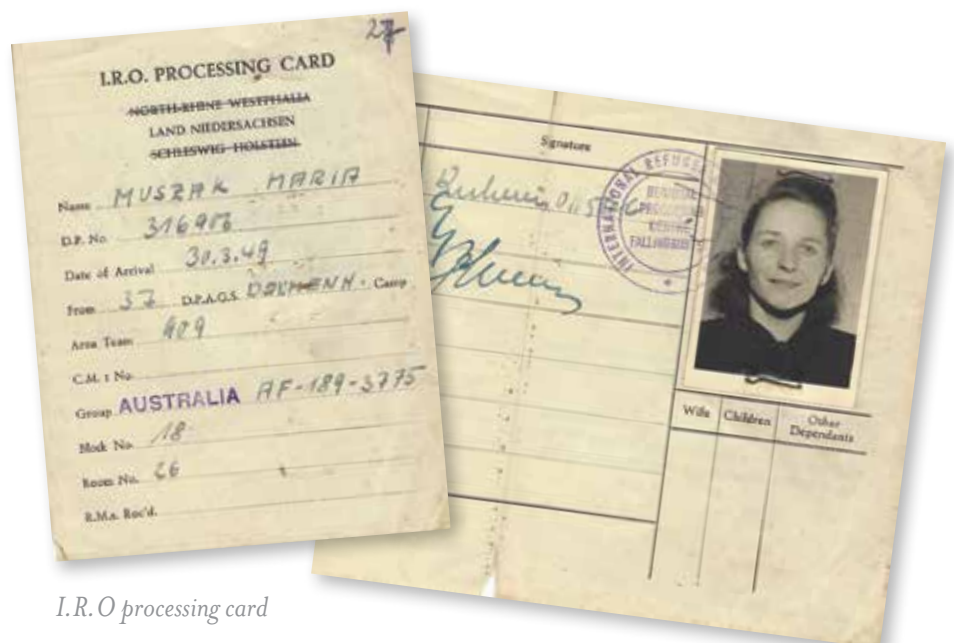 27
I.R.O. PROCESSING CARD
NORTH-RHINE WESTPHALIA
LAND NIEDERSACHSEN
SCHLESWIG HOLSTEIN
Name MUSZAK MARIA
D.P. No. 316906
Date of Arrival 30.3.49
From 37 D.P.A.G.S. Camp
Area Team 409
C.M. 1 No.
Group AUSTRALIA AF-189-3775
Block No. 18
Room No. 26
R.M.s. Rec'd.
Signature
INTERNATIONAL REFUGEE
PROCESSING
CENTRE
Wife Children Other
Dependants
I.R.O processing card